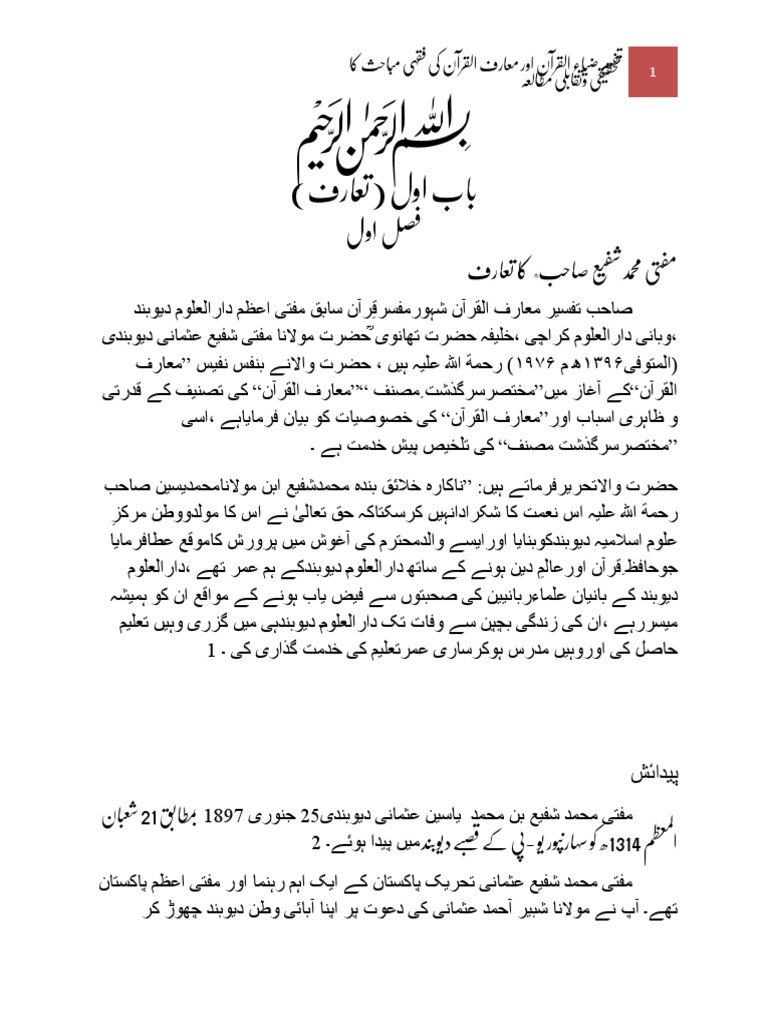 تفسیر ضیاء القرآن اور معارف القرآن کی فقہی مباحث کا
تحقیقی و تقابلی مطالعہ
1
بِسْمِ اللّٰهِ الرَّحْمٰنِ الرَّحِيْمِ
باب اول (تعارف)
فصل اول
مفتی محمد شفیع صاحبؒ کا تعارف
صاحب تفسیر معارف القرآن شہورمفسرقِرآن سابق مفتی اعظم دارالعلوم دیوبند
،وبانی دارالعلوم کراچی ،خلیفہ حضرت تھانوی ؒحضرت مولانا مفتی شفیع عثمانی دیوبندی
(المتوفی۱۳۹۶ھ م ۱۹۷۶) رحمة الله علیہ ہیں ، حضرت والانے بنفس نفیس ”معارف
القرآن“کے آغاز میں”مختصرسرگذشت ِمصنف “”معارف القرآن“ کی تصنیف کے قدرتی
و ظاہری اسباب اور”معارف القرآن“ کی خصوصیات کو بیان فرمایاہے ،اسی
”مختصرسرگذشت مصنف“ کی تلخیص پیش خدمت ہے ۔
حضرت والاتحریرفرماتے ہیں: ”ناکارہ خلائق بندہ محمدشفیع ابن مولانامحمدیسین صاحب
رحمة الله علیہ اس نعمت کا شکرادانہیں کرسکتاکہ حق تعالیٰ نے اس کا مولدووطن مرکزِ
علوم اسلامیہ دیوبندکوبنایا اورایسے والدمحترم کی آغوش میں پرورش کاموقع عطافرمایا
جوحافظ ِقرآن اورعالمِ دین ہونے کے ساتھ دارالعلوم دیوبندکے ہم عمر تھے ،دارالعلوم
دیوبند کے بانیان علماءِربانیین کی صحبتوں سے فیض یاب ہونے کے مواقع ان کو ہمیشہ
میسررہے ،ان کی زندگی بچپن سے وفات تک دارالعلوم دیوبندہی میں گزری وہیں تعلیم
حاصل کی اوروہیں مدرس ہوکرساری عمرتعلیم کی خدمت گذاری کی ۔ 1
پیدائش
مفتی محمد شفیع بن محمد یاسین عثمانی دیوبندی25 جنوری 1897 بمطابق21 شعبان
المعظم 1314ھ کو سہارنپوریو-پی کے قصبے دیوبندمیں پیدا ہوئے۔ 2
مفتی محمد شفیع عثمانی تحریک پاکستان کے ایک اہم رہنما اور مفتی اعظم پاکستان
تھے۔ آپ نے مولانا شبیر آحمد عثمانی کی دعوت پر اپنا آبائی وطن دیوبند چھوڑ کر